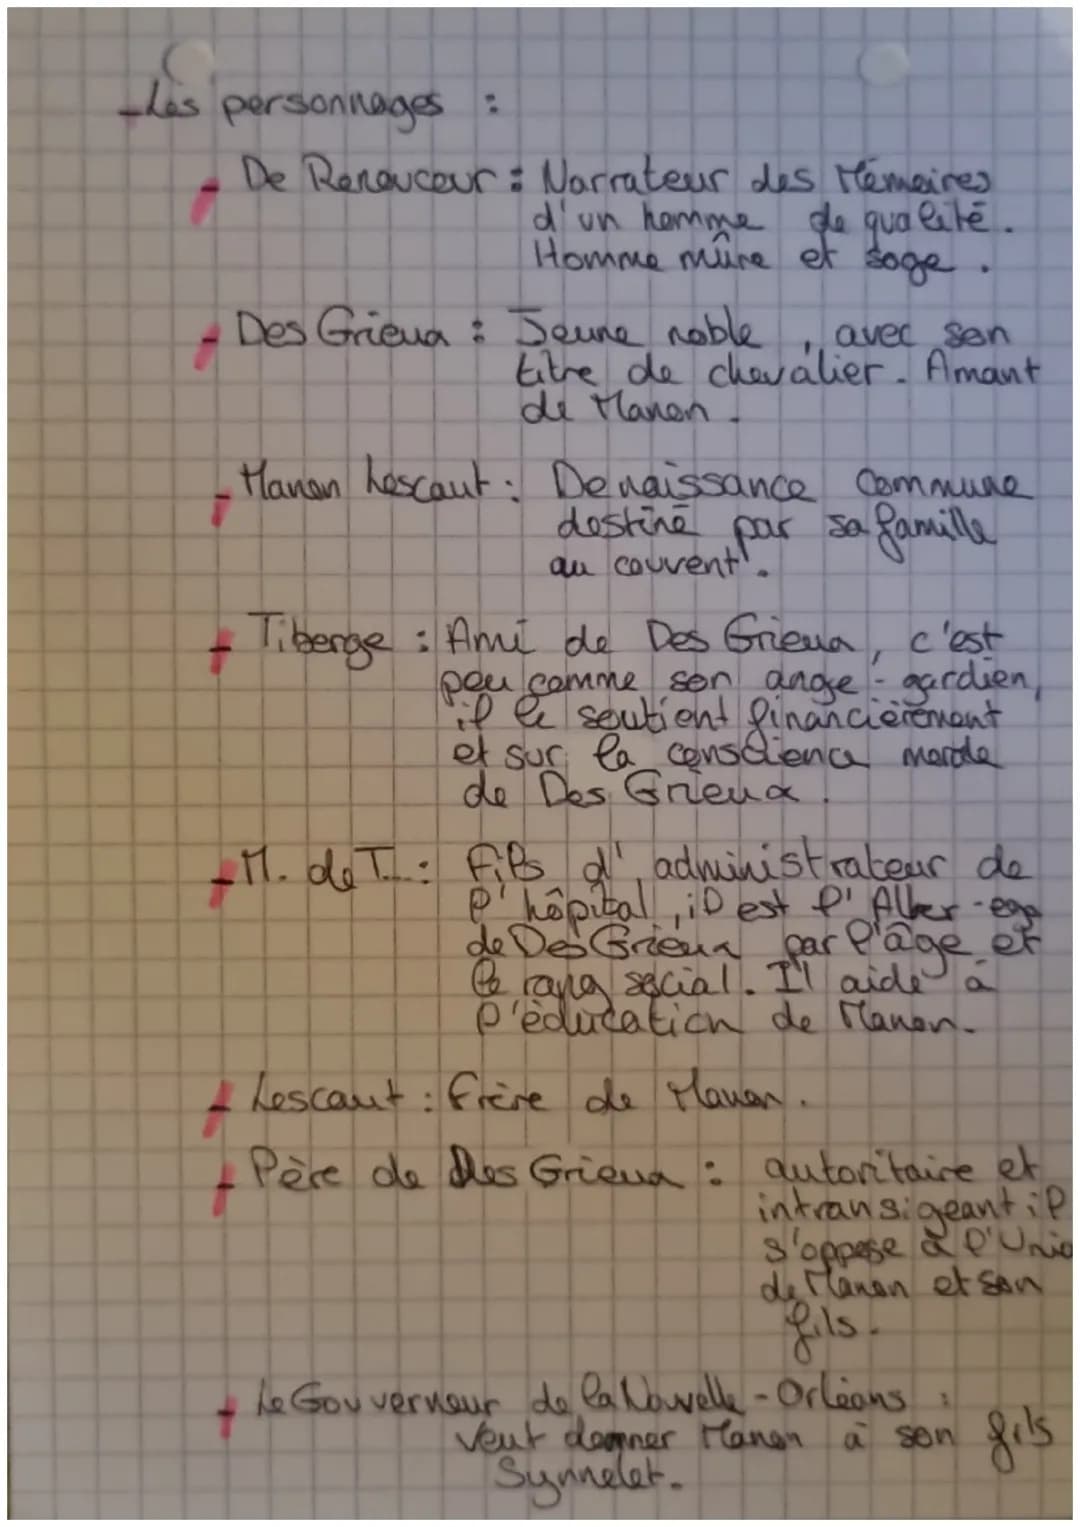 - Les personnages :
- De Renoucour : Narrateur des Mémoires
d'un homme de qualité.
Homme mûre et sage.
- Des Grieux : Jeune noble, avec son
titre de chevalier. Amant
de Manon.
- Manon Lescaut : De naissance commune
destiné par sa famille
au couvent".
- Tiberge : Ami de Des Grieux, c'est
peu comme son ange-gardien,
il le soutient financièrement
et sur la conscience morale
de Des Grieux.
- M. de T... : Fils d'administrateur de
l'hôpital, il est l'Alter-ego
de Des Grieux par l'âge et
le rang social. Il aide à
l'éducation de Manon.
- Lescaut : Frère de Manon.
- Père de Des Grieux : autoritaire et
intransigeant il
s'oppose à l'Unio
de Manon et son
fils.
- Le Gouverneur de la Nouvelle-Orléans :
Veut donner Manon à son fils
Synnelet.